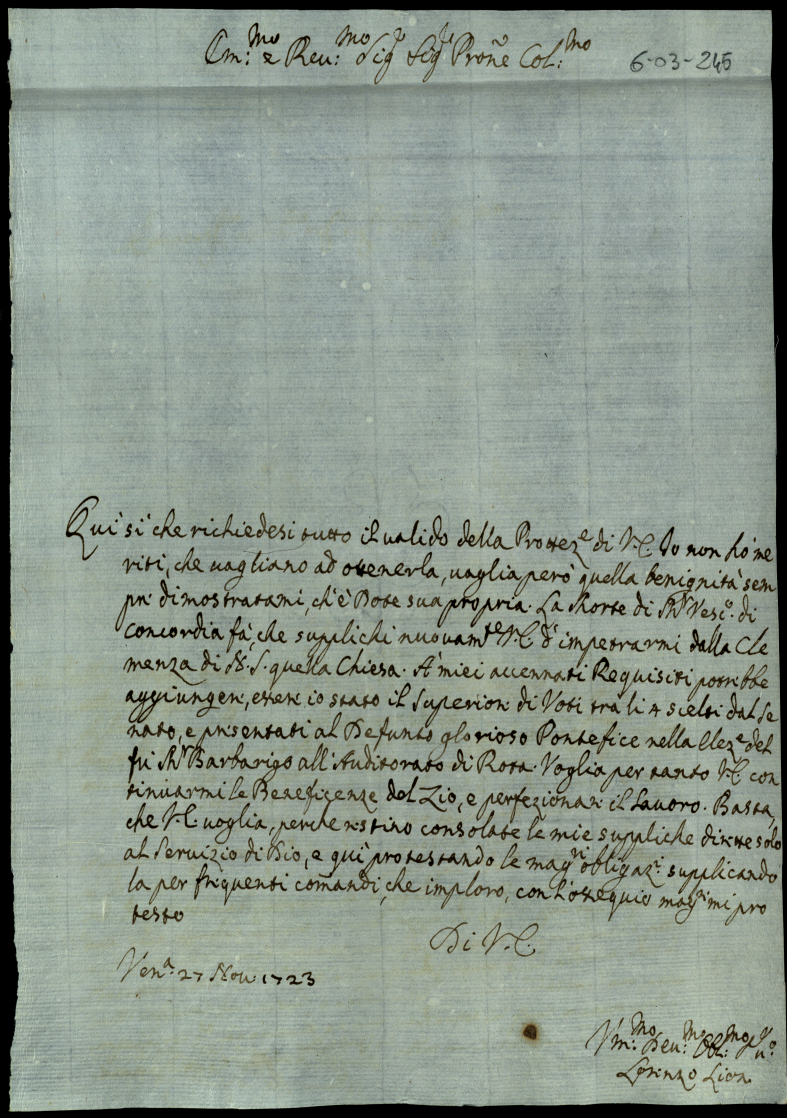 Em:mo e Reu:mo Sigr Sigr Prone Col:mo
6-03-245
Qui sì che richiedesi tutto il ualido della Protteze di V.E. Io non hò me
riti, che uagliano ad ottenerla, uaglia però quella benignità sem
pre dimostratami, ch'è Dote sua propria. La Morte di Mr Vesco. di
Concordia fà, che supplichi nuouamte V.E. d'impetrarmi dalla Cle
menza di N. S. quella Chiesa. A' miei accennati Requisiti potrebbe
aggiungere, essere io stato il Superiore di Voti trà li 4 scelti dal Se
nato, e presentati al Defunto glorioso Pontefice nella Eleze del
fù Mr Barbarigo all'Auditorato di Rota. Voglia per tanto V.E. con
tinuarmi le Beneficenze del Zio, e perfezionare il Lauoro. Basta,
che V.E. uoglia, perche restino consolate le mie suppliche dirette solo
al Seruizio di Dio, e quì protestando le maggri obligazi supplicando
la per frequenti comandi, che imploro, con l'ossequio maggre mi pro
testo
Di V.E.
Vena. 27 Nou. 1723
Vm:mo Deu:mo Obl:mo Seruo
Lorenzo Lion